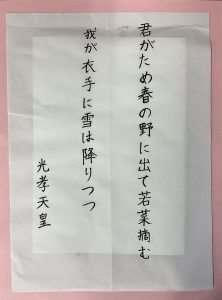 君がため春の野に出て若菜摘む
我が衣手に雪は降りつつ
光孝天皇